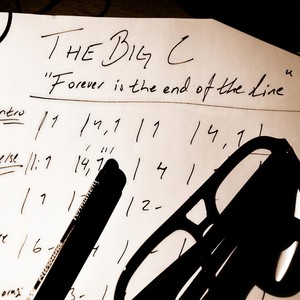 THE BIG C
"Forever is the end of the line"
Intro |1 |4,1 |1 |4,1 |
|: 1 |4, | 4 |
| 1 | 2-
| 6-